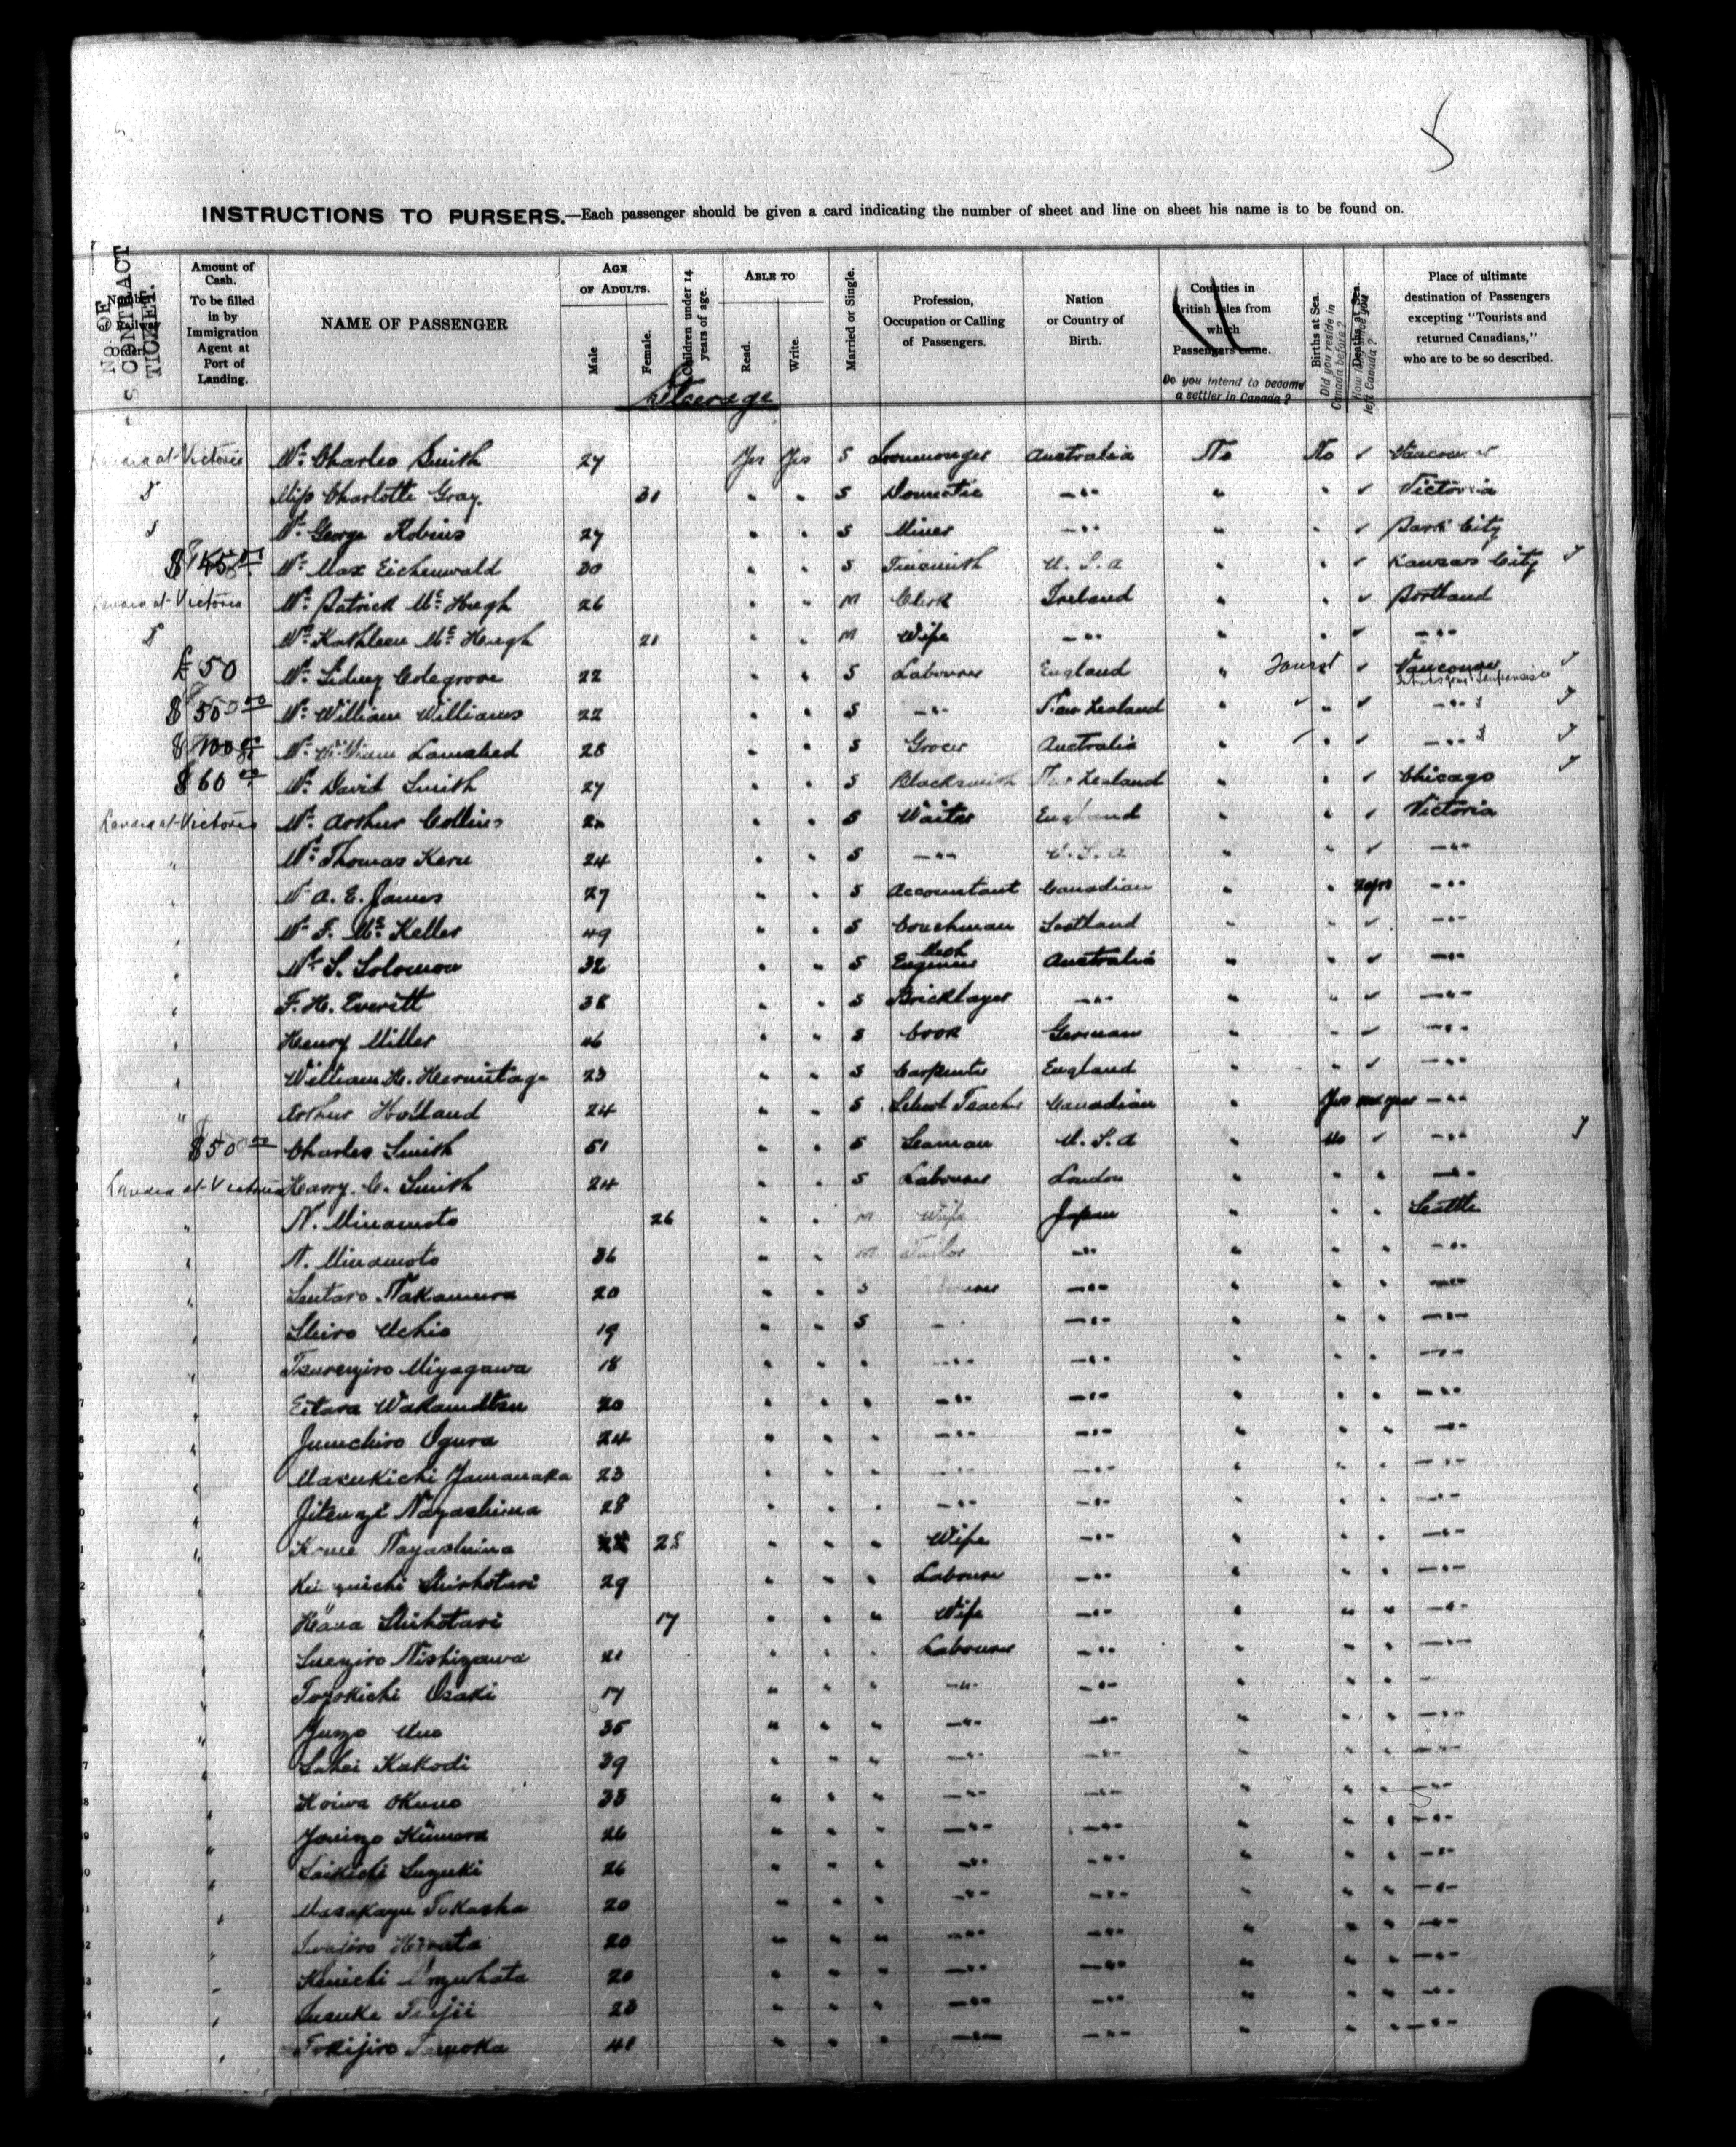 5
INSTRUCTIONS TO PURSERS.—Each passenger should be given a card indicating the number of sheet and line on sheet his name is to be found on.
No OF S CONTRACT TICKET.
Amount of Cash. To be filled in by Immigration Agent at Port of Landing.
NAME OF PASSENGER
AGE OF ADULTS. Male Female.
Children under 14 years of age.
ABLE TO Read. Write.
Married or Single.
Profession, Occupation or Calling of Passengers.
Nation or Country of Birth.
Counties in British Isles from which Passengers came.
Do you intend to become a settler in Canada?
Births at Sea. Did you reside in Canada before?
Deaths at Sea. left Canada?
Place of ultimate destination of Passengers excepting "Tourists and returned Canadians," who are to be so described.
Steerage
Landed at Victoria Mr. Charles Smith 27 Yes Yes S Ironmonger Australia No No ✓ Vancouver
Miss Charlotte Gray. 31 " " S Domestic —"— " " ✓ Victoria
Mr. George Robins 27 " " S Miner —"— " " ✓ Park City
$ Mr. Max Eichenwald 30 " " S Tinsmith U.S.A " " ✓ Kansas City
Landed at Victoria Mr. Patrick McHugh 26 " " M Clerk Ireland " " ✓ Portland
Kathleen McHugh 21 " " M Wife —"— " " ✓ —"—
£50 Mr. Sidney Colegrove 22 " " S Labourer England " Tourist ✓ Vancouver
$50 00 Mr. William Williams 22 " " S —"— New Zealand " " ✓ —"—
$100 00 Mr. William Lamshed 28 " " S Grocer Australia " " ✓ —"—
$60 00 Mr. David Smith 27 " " S Blacksmith New Zealand " " ✓ Chicago
Landed at Victoria Mr. Arthur Collins " " S Waiter England " " ✓ Victoria
" Mr. Thomas Kern 24 " " S —"— U.S.A " " ✓ —"—
" Mr A. E. James 27 " " S Accountant Canadian " " —"—
" Mr F. McKeller 49 " " S Coachman Scotland " " ✓ —"—
" Mr S. Solomon 32 " " S Mech Engineer Australia " " ✓ —"—
" F. H. Everitt 38 " " S Bricklayer —"— " " ✓ —"—
" Henry Miller 46 " " S Cook German " " ✓ —"—
" William H. Hermitage 23 " " S Carpenter England " " ✓ —"—
" Arthur Holland 24 " " S School Teacher Canadian " Yes one year —"—
$50 00 Charles Smith 51 " " S Seaman U.S.A " No ✓ —"—
Landed at Victoria Harry. C. Smith 24 " " S Labourer London " " " —"—
" N. Minamoto 26 " " M Wife Japan " " " Seattle
" N. Minamoto 36 " " M Tailor —"— " " " —"—
" Sentaro Nakamura 20 " " S —"— " " " —"—
" Shiro Uchio 19 " " S —"— —"— " " " —"—
" Tsurenjiro Miyagawa 18 " " " —"— —"— " " " —"—
" Eitara Wakamatsu 20 " " " —"— —"— " " " —"—
" Junichiro Ogura 24 " " " —"— —"— " " " —"—
" Masukichi Yamanaka 23 " " " —"— —"— " " " —"—
" Nagashima 28 " " " —"— —"— " " " —"—
" Nagashima 25 " " " Wife —"— " " " —"—
" Shirhotari 29 " " " Labourer —"— " " " —"—
" Shihotari 17 " " " Wife —"— " " " —"—
" Suenjiro Nishizawa 21 " " " Labourer —"— " " " —"—
" Toyokichi Osaki 17 " " " —"— —"— " " " —
" Junzo Uno 35 " " " —"— —"— " " " —"—
" Kakodi 39 " " " —"— —"— " " " —"—
" Koiwa Okuno 33 " " " —"— —"— " " " —"—
" Kimura 26 " " " —"— —"— " " " —"—
" Saikichi Suzuki 26 " " " —"— —"— " " " —"—
" 20 " " " —"— —"— " " " —"—
" Hirata 20 " " " —"— —"— " " " —"—
" Kenichi 20 " " " —"— —"— " " " —"—
" 23 " " " —"— —"— " " " —"—
" Tokijiro 41 " " " —"— —"— " " " —"—